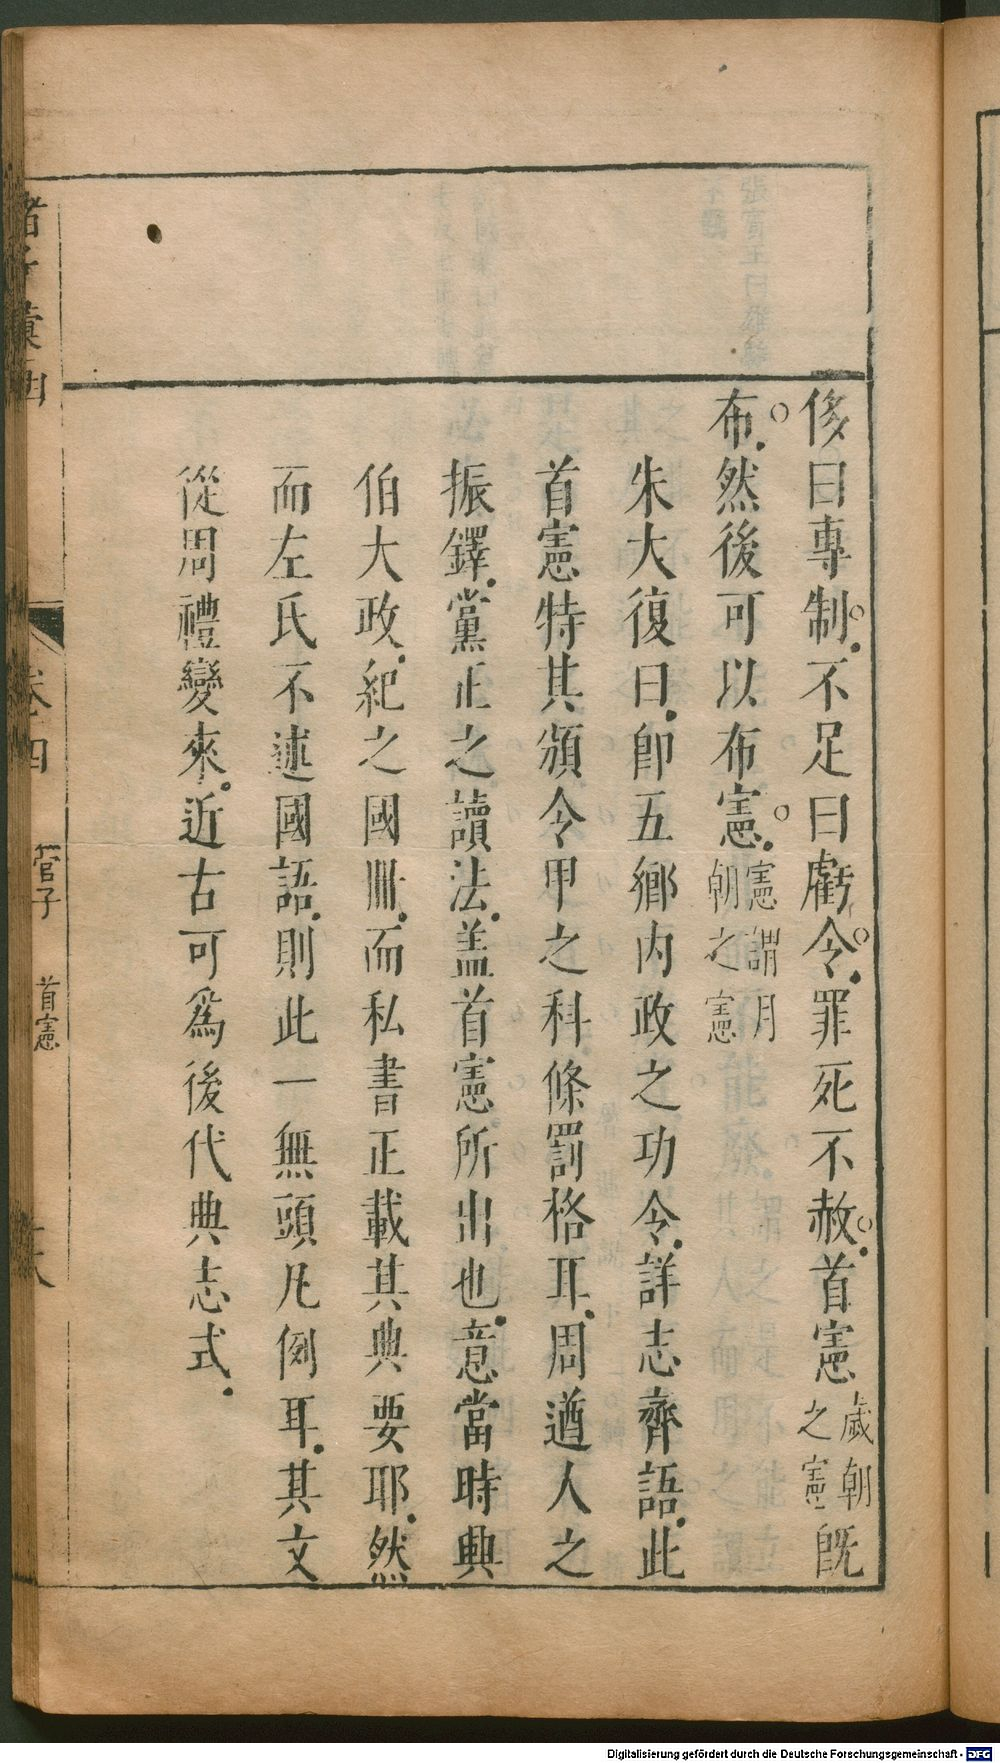 侈曰專制不足曰虧令罪死不赦首憲歲朝之憲旣
布然後可以布憲憲謂月朝之憲
朱大復曰卽五鄉內政之功令詳志齊語此
首憲特其頒令甲之科條罰格耳周遒人之
振鐸黨正之讀法盖首憲所出也意當時典
伯大政紀之國冊而私書正載其典要耶然
而左氏不述國語則此一無頭凡例耳其文
從周禮變來近古可爲後代典志式
諸子彙函
卷四
管子
首憲
Digitalisierung gefördert durch die Deutsche Forschungsgemeinschaft - DFG